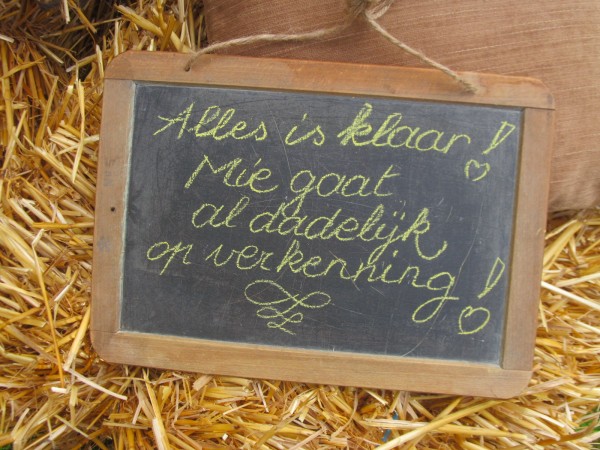 Alles is klaar!
Mie gaat
al dadelijk
op verkenning!